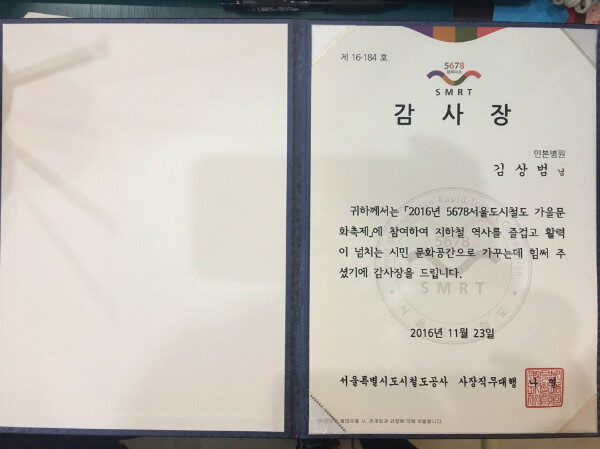 제 16-184 호
5678
SMRT
감 사 장
인본병원
김상범 님
귀하께서는 「2016년 5678서울도시철도 가을문
화축제」에 참여하여 지하철 역사를 즐겁고 활력
이 넘치는 시민 문화공간으로 가꾸는데 힘써 주
셨기에 감사장을 드립니다.
2016년 11월 23일
서울특별시도시철도공사 사장직무대행 나 열